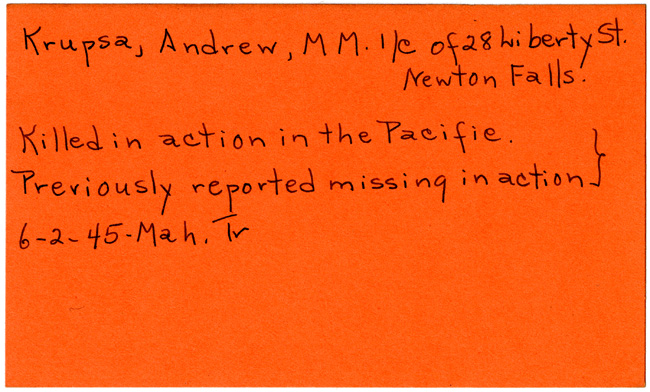 Krupsa, Andrew, M M. 1/c of 28 Liberty St.
Newton Falls.
Killed in action in the Pacific.
Previously reported missing in action
6-2-45-Mah. Tr